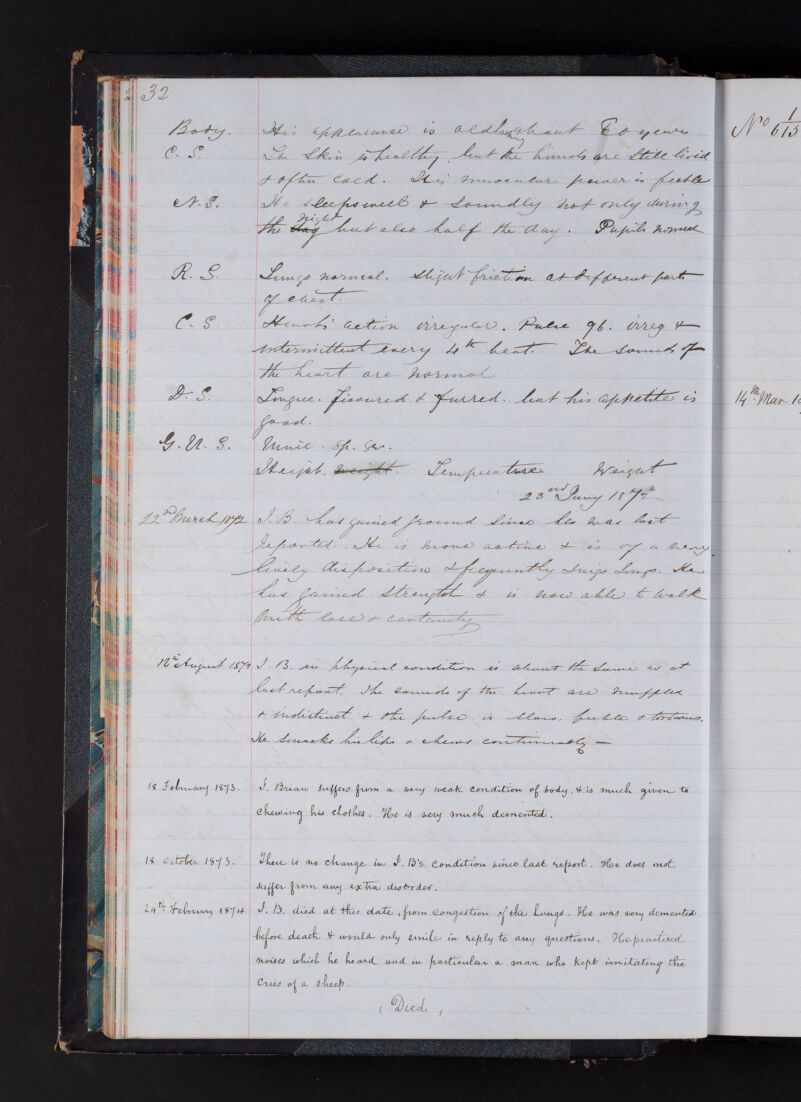 32
Body. His appearance is old looking about 60 years
C. S. The Skin is healthy, but the hands are still livid
& often cold. His muscular power is feeble
N. S. He sleeps well & soundly not only during
the day night but also half the day. Pupils normal
R. S. Lungs normal. Slight friction at different parts
of chest.
C. S. Heart's action irregular. Pulse 96. irreg &
intermittent every 4th beat. The sounds of
the heart are normal
D. S. Tongue. fissured & furred. but his appetite is
good.
G. U. S. Urine - Sp. Gr.
Height. Weight. Temperature. Weight
23rd Jany 1872
12th March 1872 J. B. has gained ground since he was last
reported. He is more active & is of a very
lively disposition & frequently sings songs. He
has gained strength & is now able to walk
with ease & certainty
12th August 1872 J. B. in physical condition is about the same as at
last report. The sounds of the heart are muffled
& indistinct & the pulse is slow, feeble & tortuous.
He smacks his lips & chews continually —
18 February 1873. J. Brian suffers from a very weak condition of body, & is much given to
chewing his clothes. He is very much demented.
18 October 1873. There is no change in J. B's condition since last report. He does not
suffer from any extra disorder.
24th February 1874 J. B. died at this date, from congestion of the Lungs. He was very demented
before death & would only smile in reply to any questions. He practised
noises which he heard and in particular a man who kept imitating the
cries of a sheep.
(Died)
No 1/615
14th Mar. 1